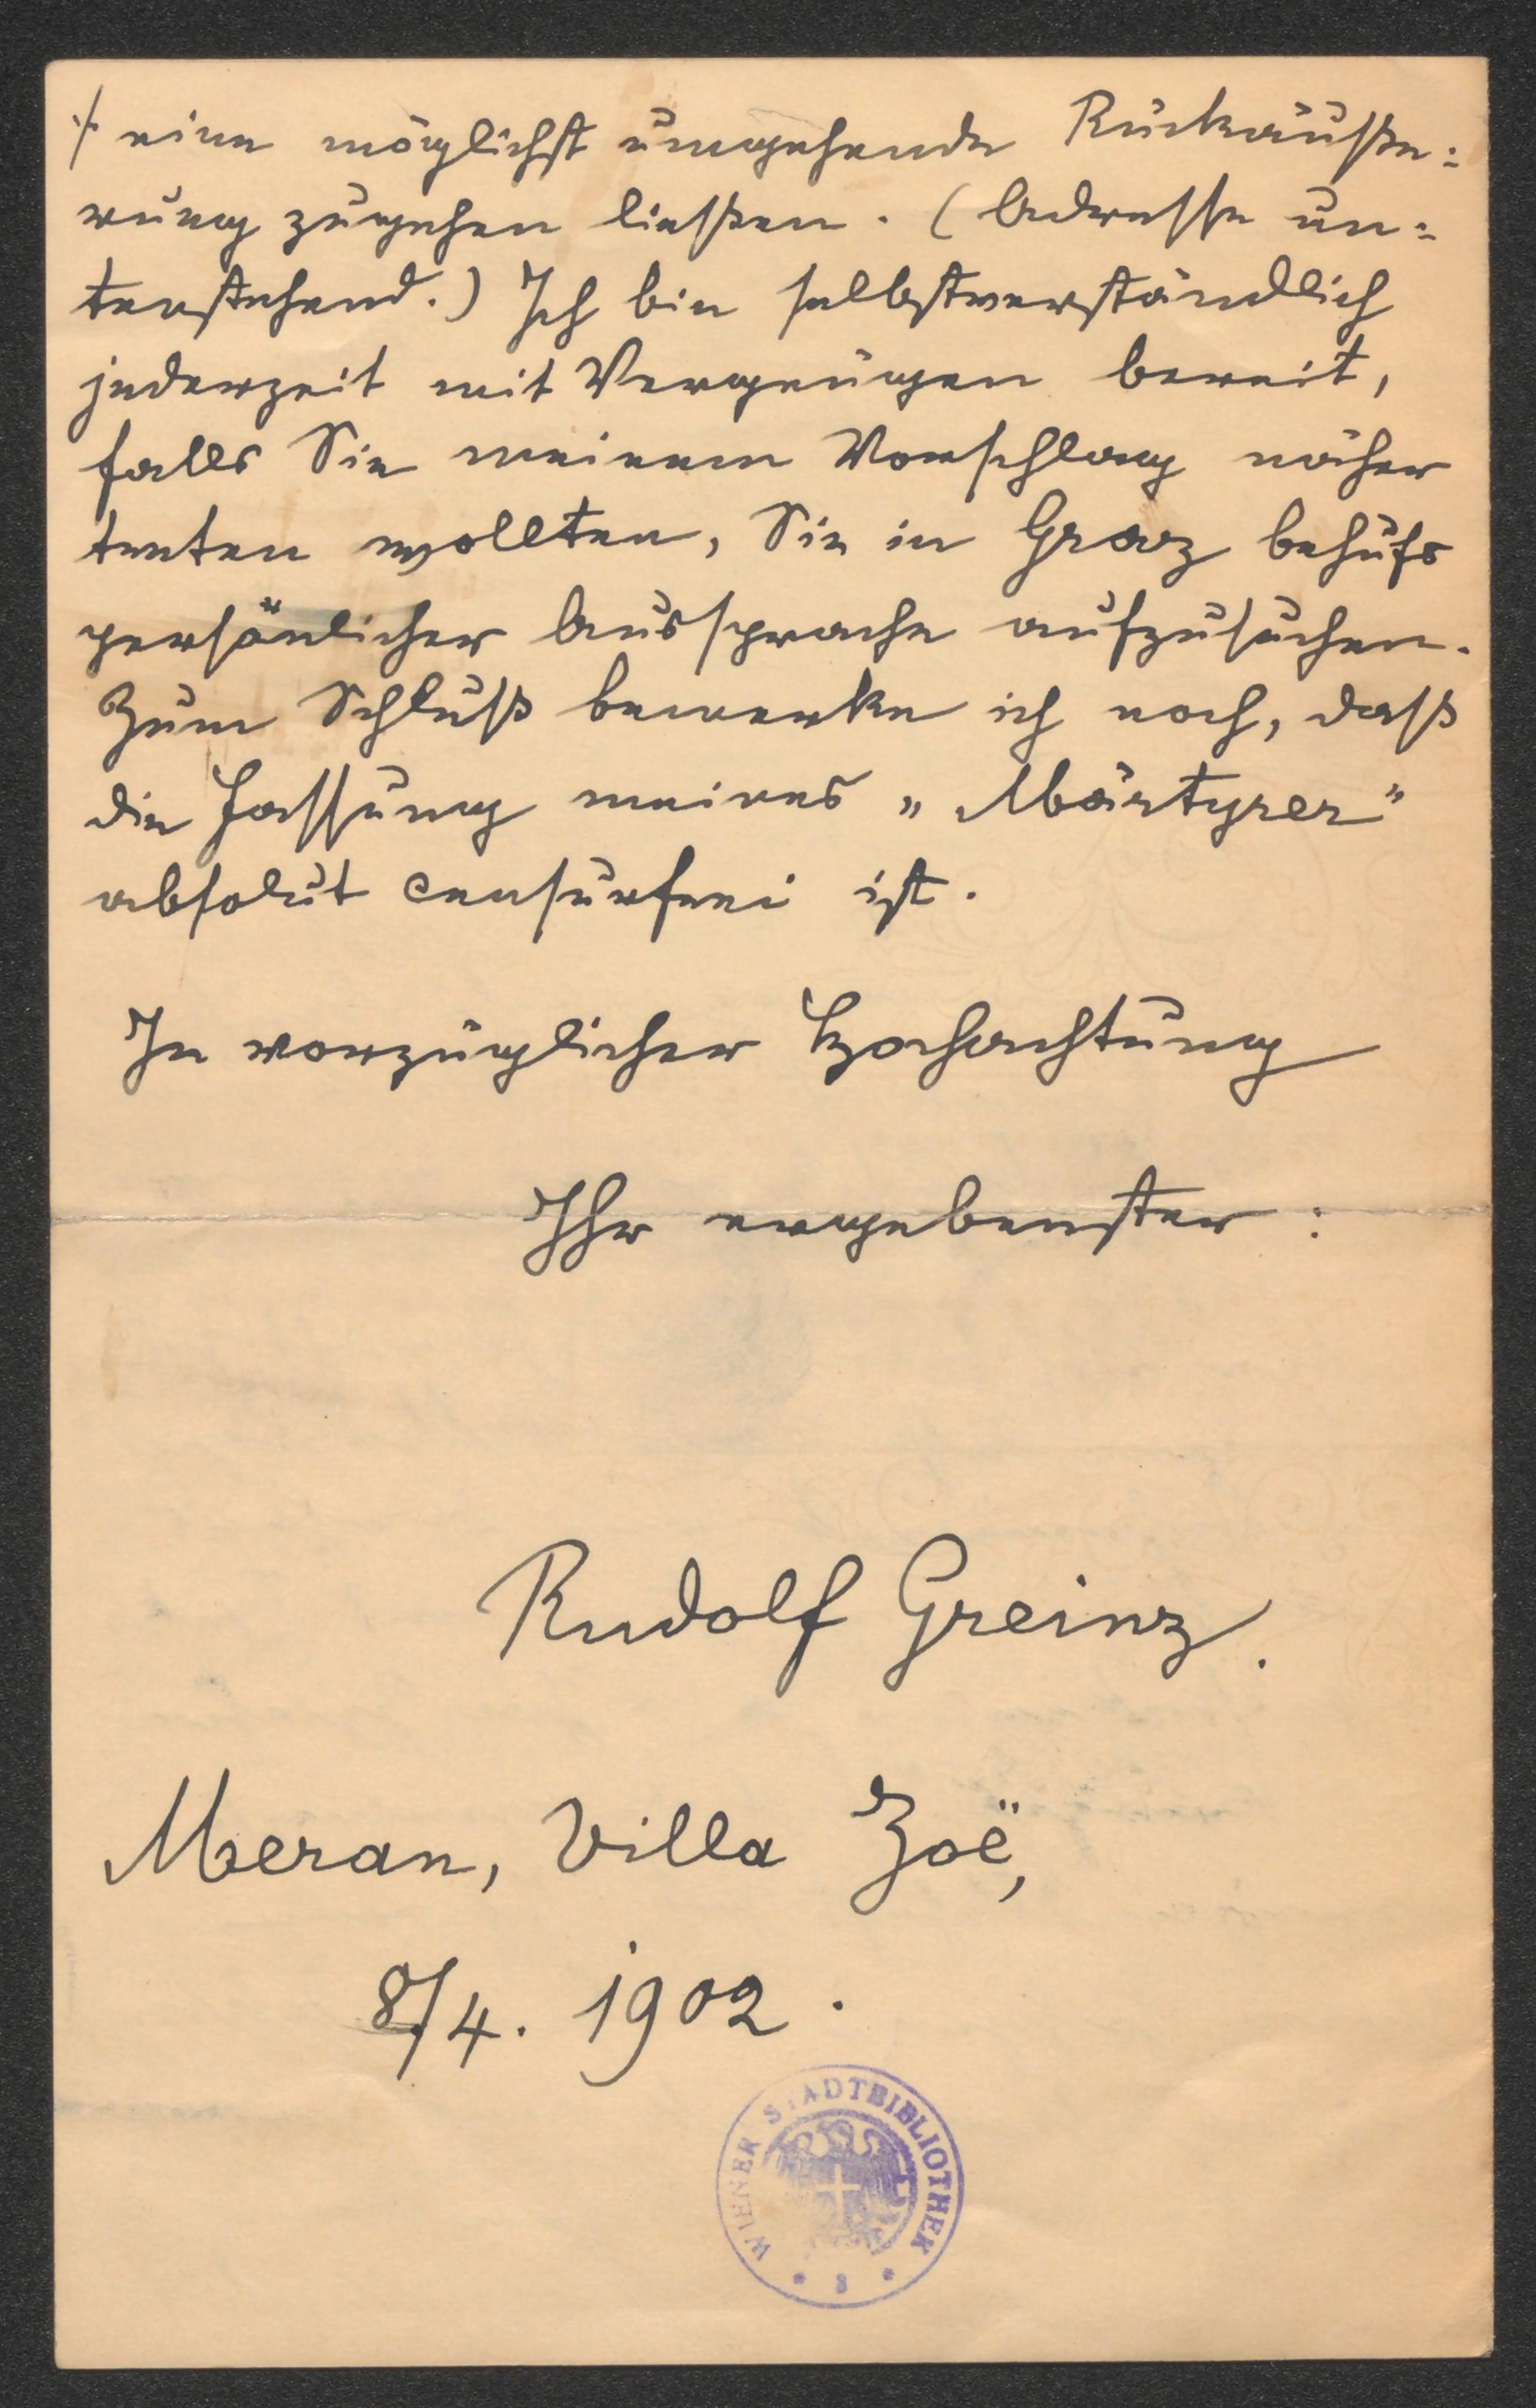 ·/· eine möglichst umgehende Rückäuße=
rung zugehen ließen. (Adresse un=
tenstehend.) Ich bin selbstverständlich
jederzeit mit Vergnügen bereit,
falls Sie meinem Vorschlag näher
treten wollten, Sie in Graz behufs
persönlicher Aussprache aufzusuchen.
Zum Schluß bemerke ich noch, daß
die Fassung meines „Märtyrer"
absolut censurfrei ist.
In vorzüglicher Hochachtung
Ihr ergebenster:
Rudolf Greinz.
Meran, Villa Zoë,
8/4. 1902.
WIENER STADTBIBLIOTHEK
* 8 *